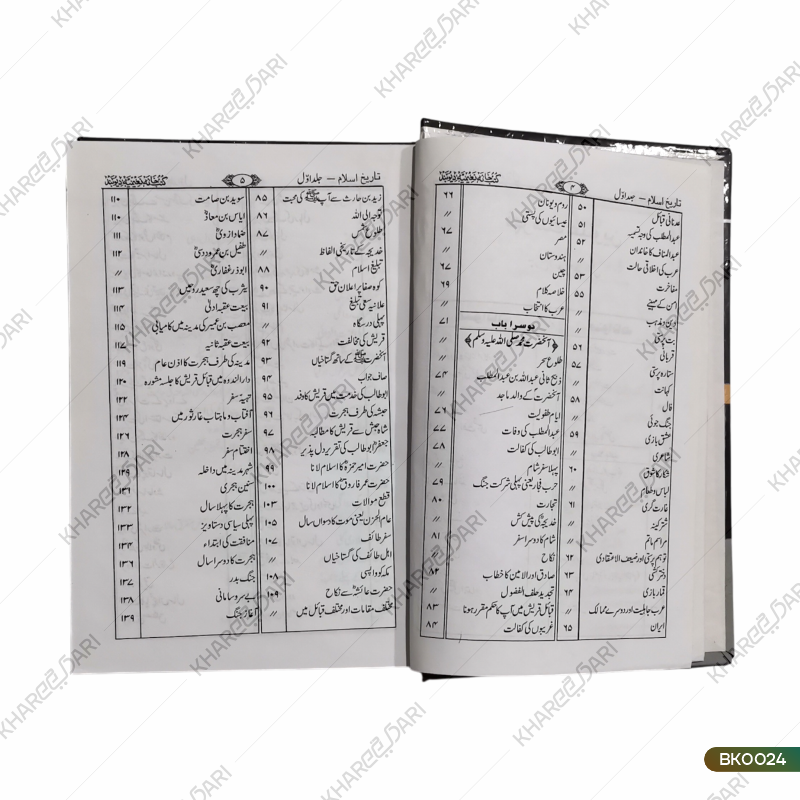 تاریخ اسلام – جلد اوّل
۴
عدنانی قبائل ۵۰
عبدالمطلب کی وجہ تسمیہ ۵۱
عبدالمناف کا خاندان ۵۲
عرب کی اخلاقی حالت ۵۳
مفاخرت ۵۵
امن کے مہینے
دین و مذہب
بت پرستی ۵۶
قربانی ۵۷
ستارہ پرستی
کہانت
فال ۵۸
جنگ جوئی
عشق بازی ۵۹
شاعری
شکار کا شوق ۶۰
لباس و طعام
غارت گری ۶۱
شتر کینہ
مراسم ماتم
توہم پرستی اور ضعیف الاعتقادی ۶۲
دختر کشی ۶۳
قمار بازی ۶۴
عرب جاہلیت اور دوسرے ممالک
ایران ۶۵
روم و یونان ۶۶
عیسائیوں کی پستی
مصر ۶۷
ہندوستان
چین ۶۷
خلاصہ کلام ۶۹
عرب کا انتخاب
دوسرا باب ۷۱
﴿آنحضرت محمد صلی اللہ علیہ وسلم﴾
طلوع سحر
ذبیح ثانی عبداللہ بن عبدالمطلب ۷۴
آنحضرت کے والد ماجد
ایام طفولیت ۷۶
عبدالمطلب کی وفات ۷۷
ابوطالب کی کفالت ۷۸
پہلا سفر شام
حرب فجار یعنی پہلی شرکت جنگ ۷۹
تجارت ۸۰
خدیجہؓ کی پیش کش
شام کا دوسرا سفر ۸۱
نکاح
صادق اور الامین کا خطاب
تجدید حلف الفضول
قبائل قریش میں آپ کا حکم مقرر ہونا ۸۳
غریبوں کی کفالت ۸۴
تاریخ اسلام – جلد اوّل
۵
زید بن حارث سے آپ ﷺ کی محبت ۸۵
توجہ الی اللہ ۸۶
طلوع شمس ۸۷
خدیجہ کے تاریخی الفاظ
تبلیغ اسلام ۸۸
کوہ صفا پر اعلان حق ۹۰
علانیہ سعی تبلیغ ۹۱
پہلی درسگاہ
قریش کی مخالفت ۹۲
آنحضرت کے ساتھ گستاخیاں ۹۳
صاف جواب ۹۴
ابوطالب کی خدمت میں قریش کا وفد ۹۵
حبشہ کی طرف ہجرت ۹۶
شاہ حبش سے قریش کا مطالبہ ۹۷
جعفرؓ ابوطالب کی تقریر دل پذیر ۹۸
حضرت امیر حمزہؓ کا اسلام لانا ۹۹
حضرت عمر فاروقؓ کا اسلام لانا ۱۰۰
قطع موالات ۱۰۳
عام الحزن یعنی موت کا دسواں سال ۱۰۵
سفر طائف ۱۰۷
اہل طائف کی گستاخیاں
مکہ کو واپسی ۱۰۸
حضرت عائشہؓ سے نکاح ۱۰۹
مختلف مقامات اور مختلف قبائل میں
سوید بن صامت ۱۱۰
ایاس بن معاذؓ ۱۱۰
ضماد ازدیؓ ۱۱۱
طفیل بن عمرو دوسیؓ
ابوذر غفاریؓ ۱۱۲
یثرب کی چھ سعید روحیں ۱۱۳
بیعت عقبہ اولیٰ ۱۱۴
مصعب بن عمیر کی مدینہ میں کامیابی ۱۱۵
بیعت عقبہ ثانیہ
مدینہ کی طرف ہجرت کا اذن عام ۱۱۹
دارالندوہ میں قبائل قریش کا جلسہ مشورہ ۱۲۰
تہیہ سفر ۱۲۲
آفتاب و ماہتاب غار ثور میں ۱۲۴
سفر ہجرت ۱۲۶
اختتام سفر ۱۲۸
شہر مدینہ میں داخلہ ۱۲۹
سنین ہجری ۱۳۱
ہجرت کا پہلا سال ۱۳۲
پہلی سیاسی دستاویز ۱۳۳
منافقت کی ابتداء ۱۳۴
ہجرت کا دوسرا سال ۱۳۶
جنگ بدر ۱۳۷
بے سروسامانی ۱۳۸
آغاز جنگ ۱۳۹
BK0024